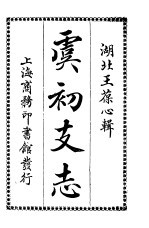 湖北王葆心輯
虞初支志
上海商務印書館發行